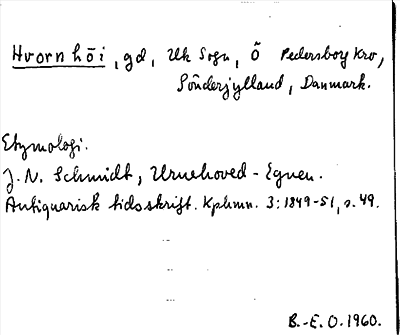 Hvornhõi, gd, Uk Sogn, Õ Pedersborg Kro,
Sönderjylland, Danmark.
Etymologi.
J. N. Schmidt, Urnehoved-Egnen.
Antiquarisk tidsskrift. Kphmn. 3:1849-51, s. 49.
B.-E. O. 1960.